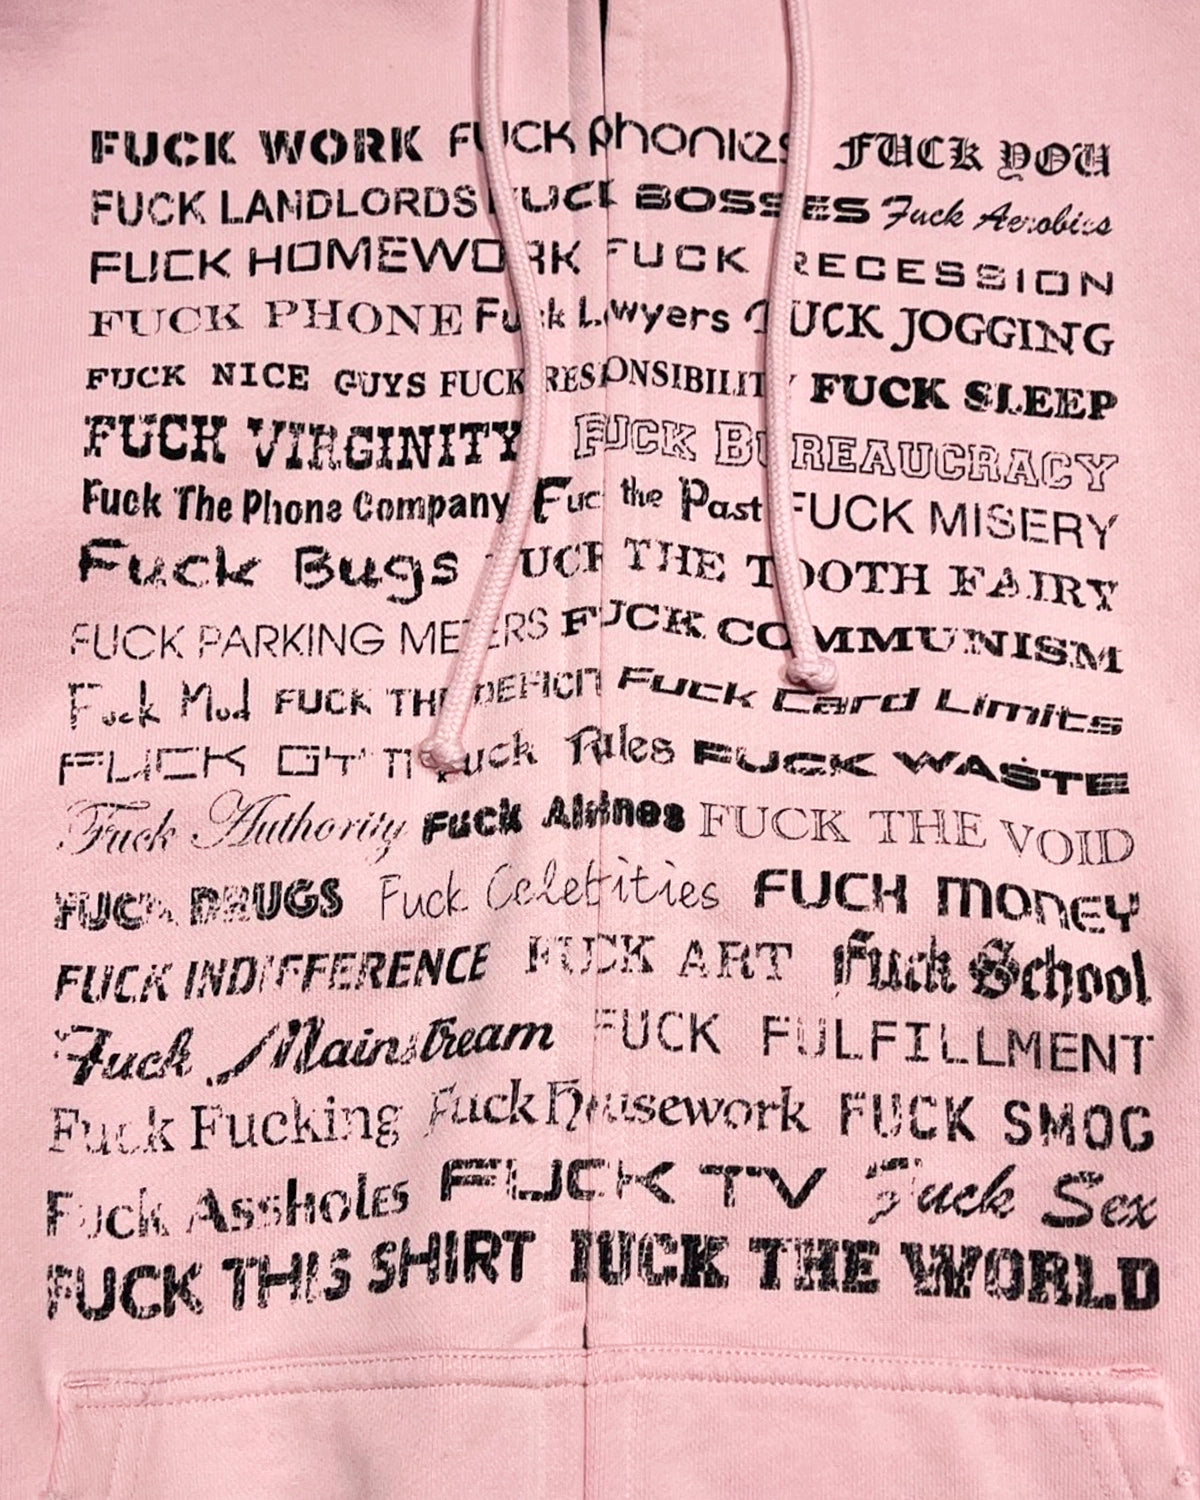 FUCK WORK FUCK phonies FUCK YOU
FUCK LANDLORDS FUCK BOSSES Fuck Aerobics
FUCK HOMEWORK FUCK RECESSION
FUCK PHONE Fuck Lawyers FUCK JOGGING
FUCK NICE GUYS FUCK RESPONSIBILITY FUCK SLEEP
FUCK VIRGINITY FUCK BUREAUCRACY
Fuck The Phone Company Fuck the Past FUCK MISERY
Fuck Bugs FUCK THE TOOTH FAIRY
FUCK PARKING METERS FUCK COMMUNISM
Fuck Mud FUCK THE DEFICIT Fuck Card Limits
FUCK Fuck Rules FUCK WASTE
Fuck Authority Fuck Airlines FUCK THE VOID
FUCK DRUGS Fuck Celebrities FUCK MONEY
FUCK INDIFFERENCE FUCK ART Fuck School
Fuck Mainstream FUCK FULFILLMENT
Fuck Fucking Fuck Housework FUCK SMOG
Fuck Assholes FUCK TV Fuck Sex
FUCK THIS SHIRT FUCK THE WORLD